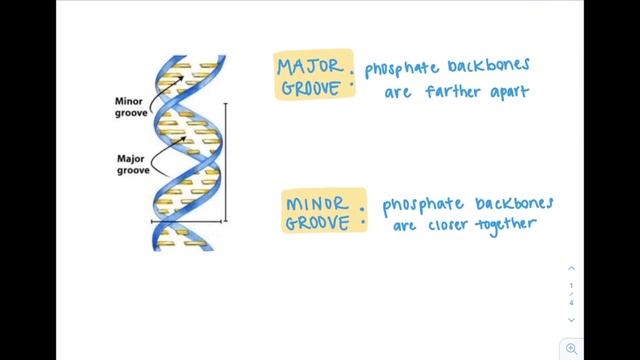 Minor
groove
Major
groove
MAJOR : phosphate backbones
GROOVE : are farther apart
MINOR : phosphate backbones
GROOVE : are closer together
1
/
4